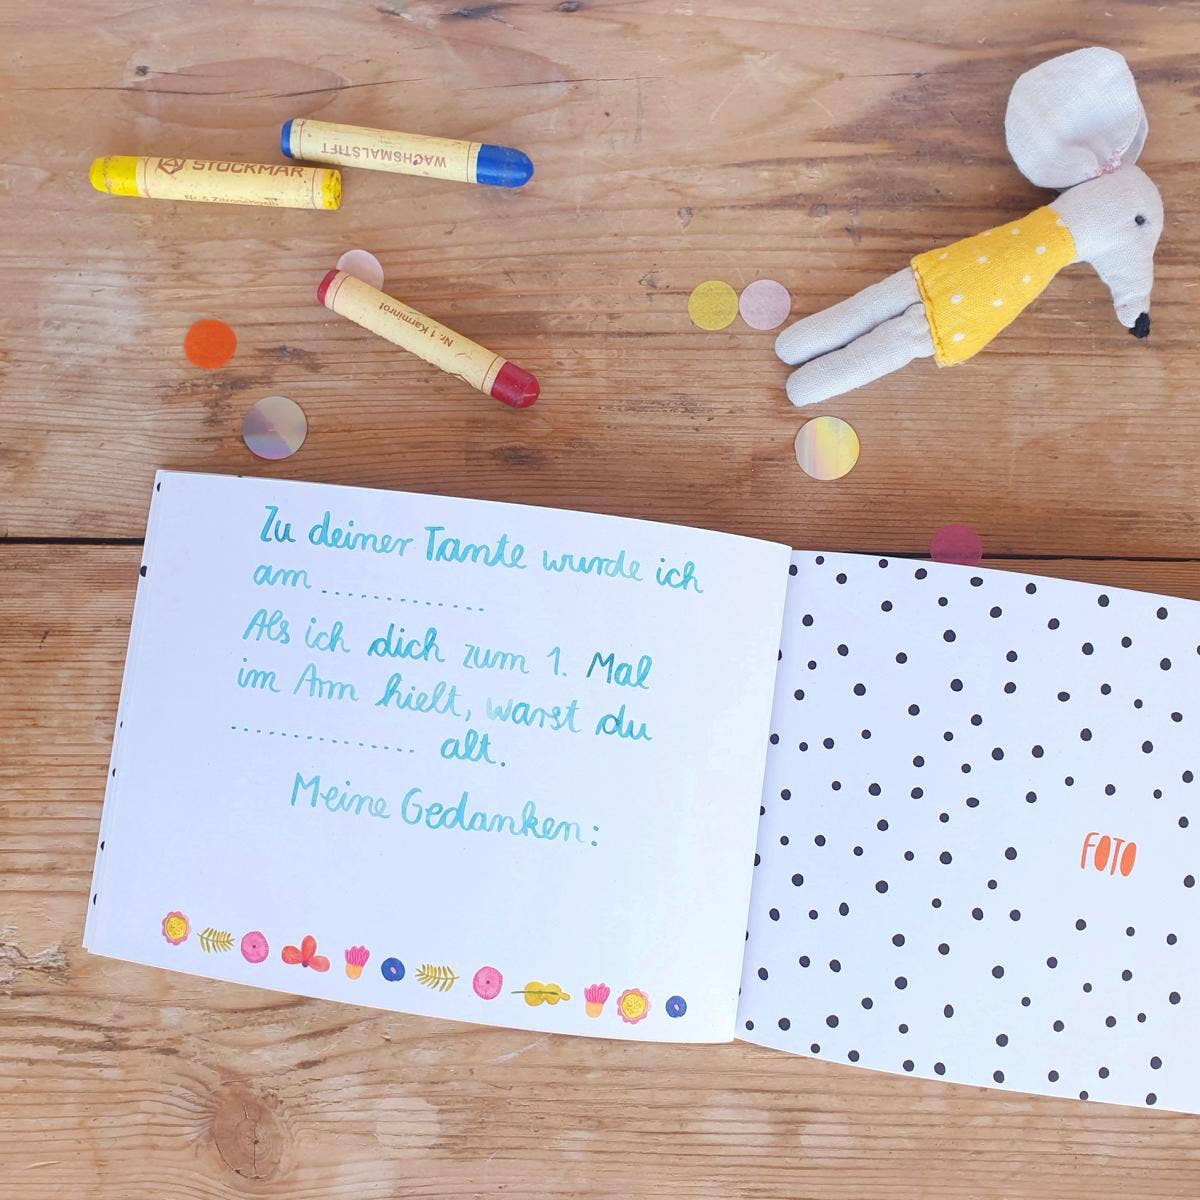 WACHSMALSTIFT
STOCKMAR
Nr. 5 Zitronengelb
Nr. 1 Karminrot
Zu deiner Tante wurde ich
am .............
Als ich dich zum 1. Mal
im Arm hielt, warst du
............... alt.
Meine Gedanken:
FOTO